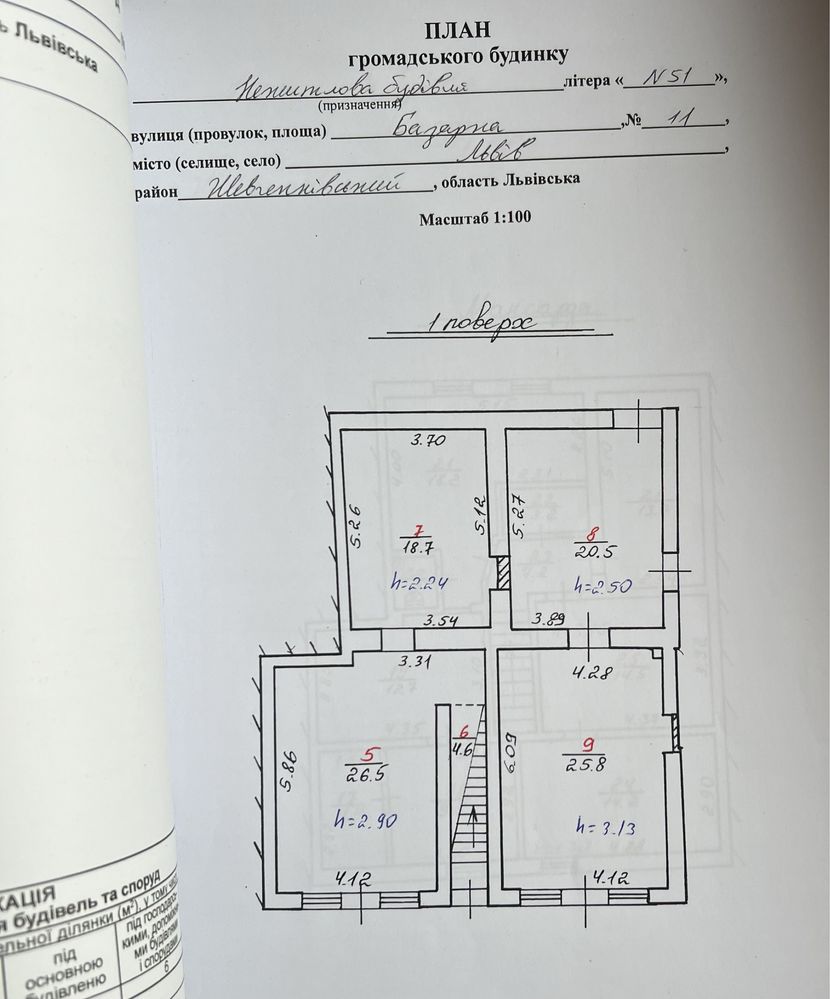 Львівська
ПЛАН
громадського будинку
Нежитлова будівля літера « N51 »,
(призначення)
вулиця (провулок, площа) Базарна ,№ 11 ,
місто (селище, село) Львів ,
район Шевченківський , область Львівська
Масштаб 1:100
1 поверх
3.70
5.26
5.12
5.27
7
18.7
h=2.24
8
20.5
h=2.50
3.54
3.89
3.31
4.28
5.86
5
26.5
h=2.90
6
4.6
6.09
9
25.8
h=3.13
4.12
4.12
КАЦІЯ
я будівель та споруд
ельної ділянки (м²), у тому числі
під
основною
будівлею
під господарсь-
кими, допоміжни-
ми будівлями
і спорудами
6